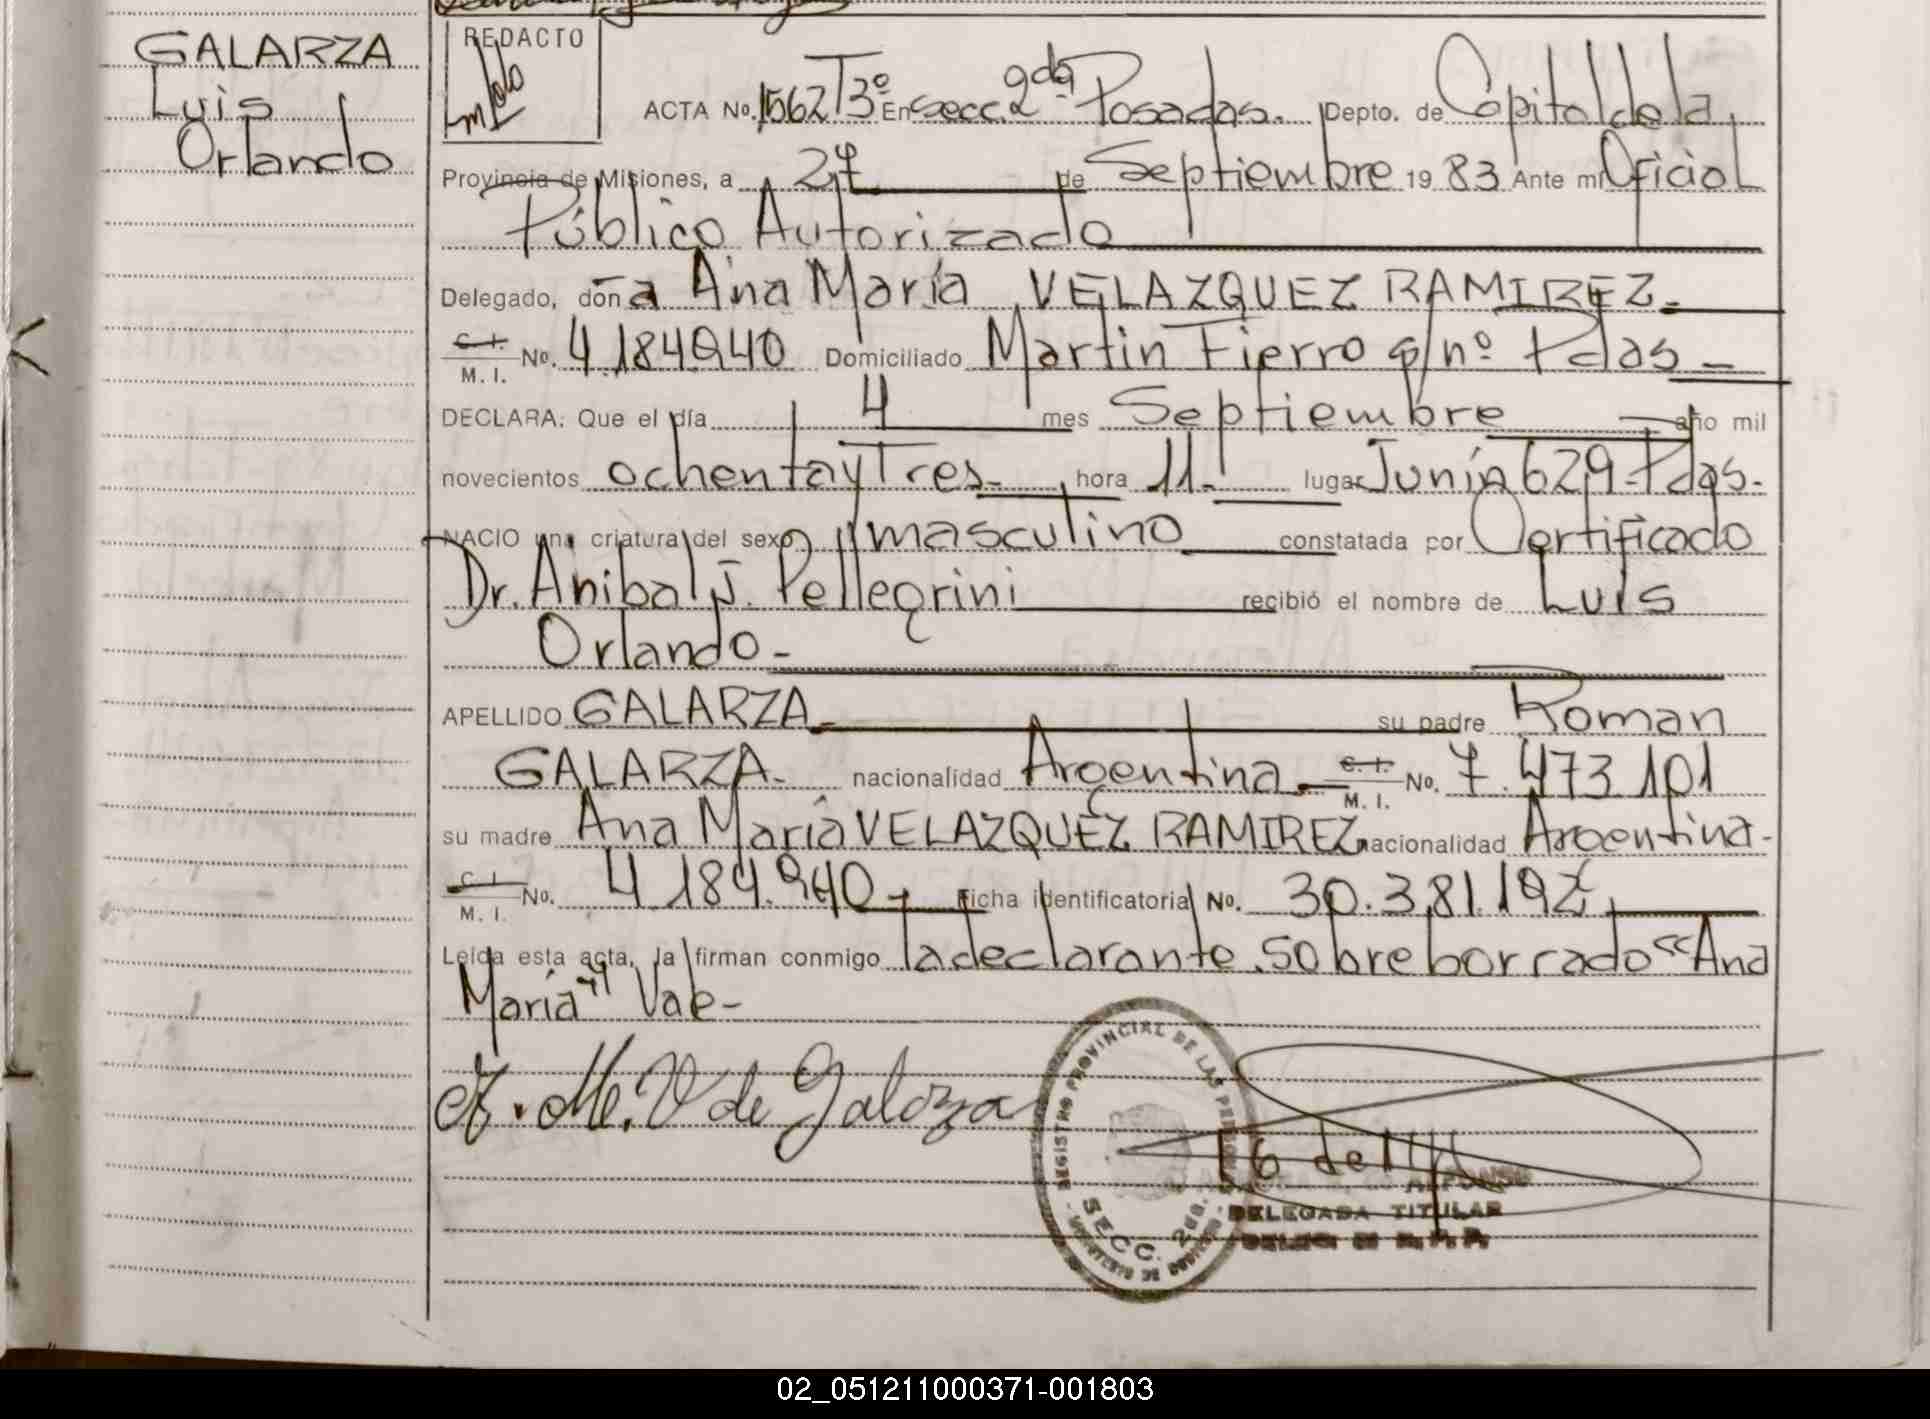 GALARZA
Luis
Orlando
REDACTO
ACTA No. 1562 T3º En secc. 2da Posadas. Depto. de Capital de la
Provincia de Misiones, a 27 de Septiembre 19 83 Ante mi Oficial
Público Autorizado
Delegado, don a Ana María VELAZQUEZ RAMIREZ.
C. I. M. I. No. 4.184.940 Domiciliado Martin Fierro s/nº Pdas
DECLARA: Que el día 4 mes Septiembre año mil
novecientos ochenta y Tres hora 11. lugar Junín 629 - Pdas.
NACIO una criatura del sexo masculino constatada por Certificado
Dr. Anibal J. Pellegrini recibió el nombre de Luis
Orlando-
APELLIDO GALARZA su padre Roman
GALARZA. nacionalidad Argentina C. I. M. I. No. 7.473.101
su madre Ana María VELAZQUEZ RAMIREZ nacionalidad Argentina-
C. I. M. I. No. 4.184.940 Ficha identificatoria No. 30.381.192
Leída esta acta, la firman conmigo la declarante. sobre borrado "Ana
María" Vale-
A. M. V de Galarza
REGISTRO PROVINCIAL DE LAS PERSONAS
SECC. 2da.
DELEGADA TITULAR
02_051211000371-001803